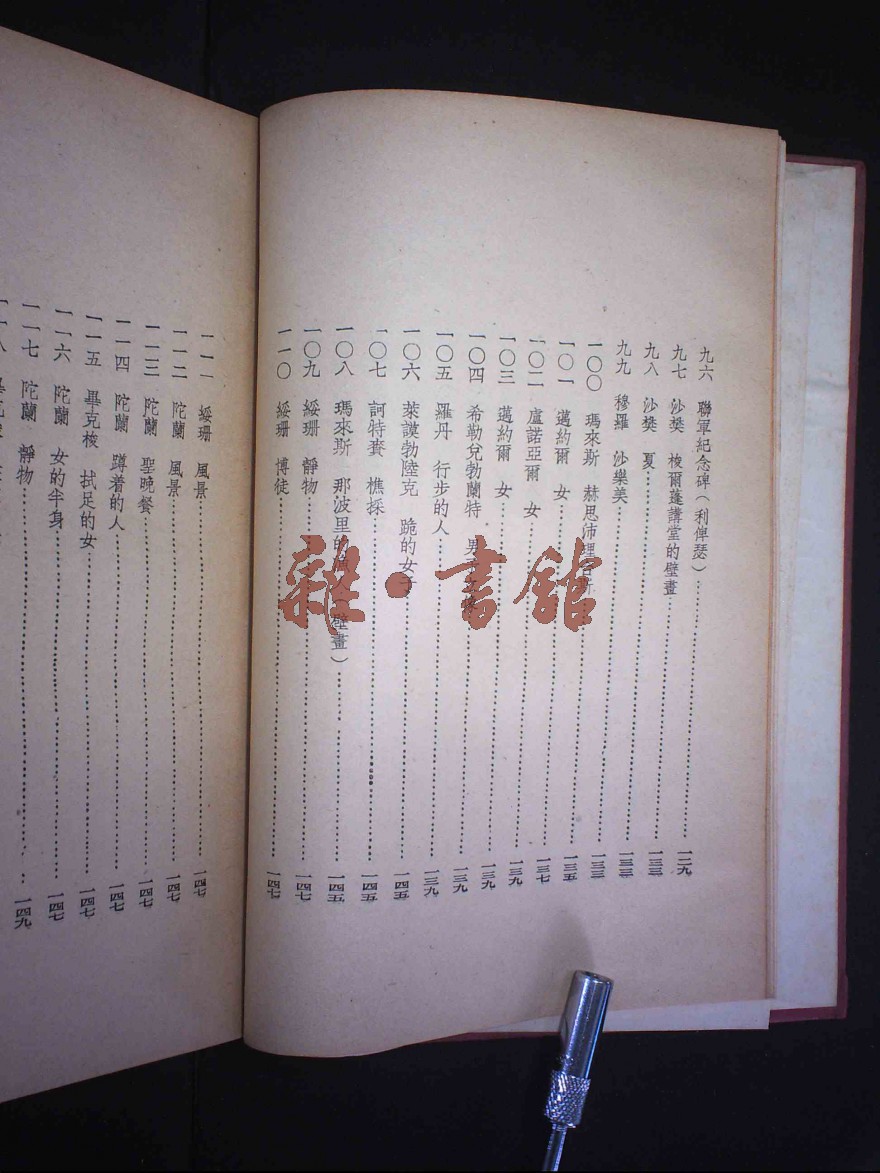 九六 聯軍紀念碑(利俾瑟)⋯⋯一二九
九七 沙樊 梭爾蓬講堂的壁畫⋯⋯一三三
九八 沙樊 夏⋯⋯一三三
九九 穆羅 沙樂美⋯⋯一三三
一〇〇 瑪來斯 赫思沛理⋯⋯一三五
一〇一 邁約爾 女⋯⋯一三七
一〇二 盧諾亞爾 女⋯⋯一三九
一〇三 邁約爾 女⋯⋯一三九
一〇四 希勒兌勃蘭特 男⋯⋯一三九
一〇五 羅丹 行步的人⋯⋯一三九
一〇六 萊謨勃陸克 跪的女⋯⋯一四五
一〇七 訶特賚 樵採⋯⋯一四五
一〇八 瑪來斯 那波里的 壁畫)⋯⋯一四五
一〇九 綏珊 靜物⋯⋯一四七
一一〇 綏珊 博徒⋯⋯一四七
一一一 綏珊 風景⋯⋯一四七
一一二 陀蘭 風景⋯⋯一四七
一一三 陀蘭 聖晚餐⋯⋯一四七
一一四 陀蘭 蹲着的人⋯⋯一四七
一一五 畢克梭 拭足的女⋯⋯一四七
一一六 陀蘭 女的半身⋯⋯一四七
一一七 陀蘭 靜物⋯⋯一四九
一一八
雜·書館